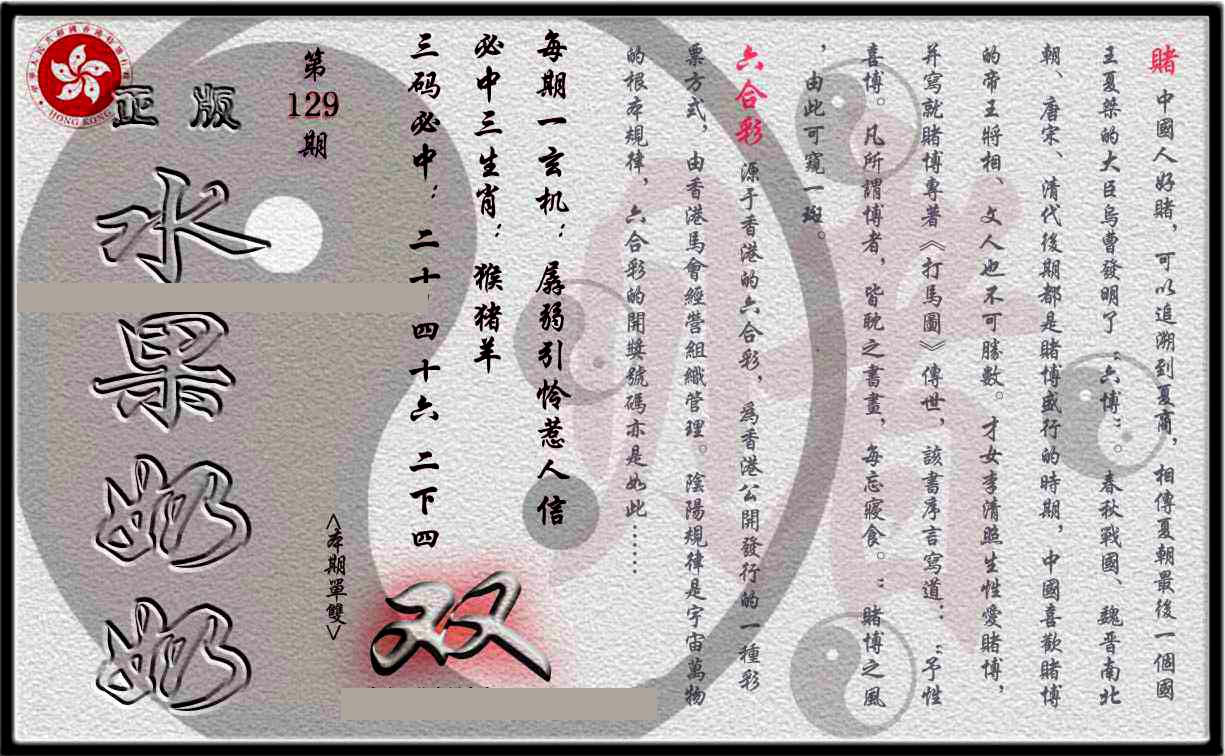 賭 中國人好賭，可以追溯到夏商，相傳夏朝最後一個國
王夏桀的大臣烏曹發明了“六博”。春秋戰國、魏晋南北
朝、唐宋、清代後期都是賭博盛行的時期，中國喜歡賭博
的帝王將相、文人也不可勝數。才女李清照生性愛賭博，
并寫就賭博專著《打馬圖》傳世，該書序言寫道：“予性
喜博。凡所謂博者，皆耽之書畫，每忘寢食。”賭博之風
，由此可窺一斑。
六合彩 源于香港的六合彩，為香港公開發行的一種彩
票方式，由香港馬會經營組織管理。陰陽規律是宇宙萬物
的根本規律，六合彩的開獎號碼亦是如此……
每期一玄机：孱弱引怜惹人信
必中三生肖：猴猪羊
三码必中：二十四十六二下四
双
<本期單雙>
第
129
期
正版
水果奶奶
HONG KONG